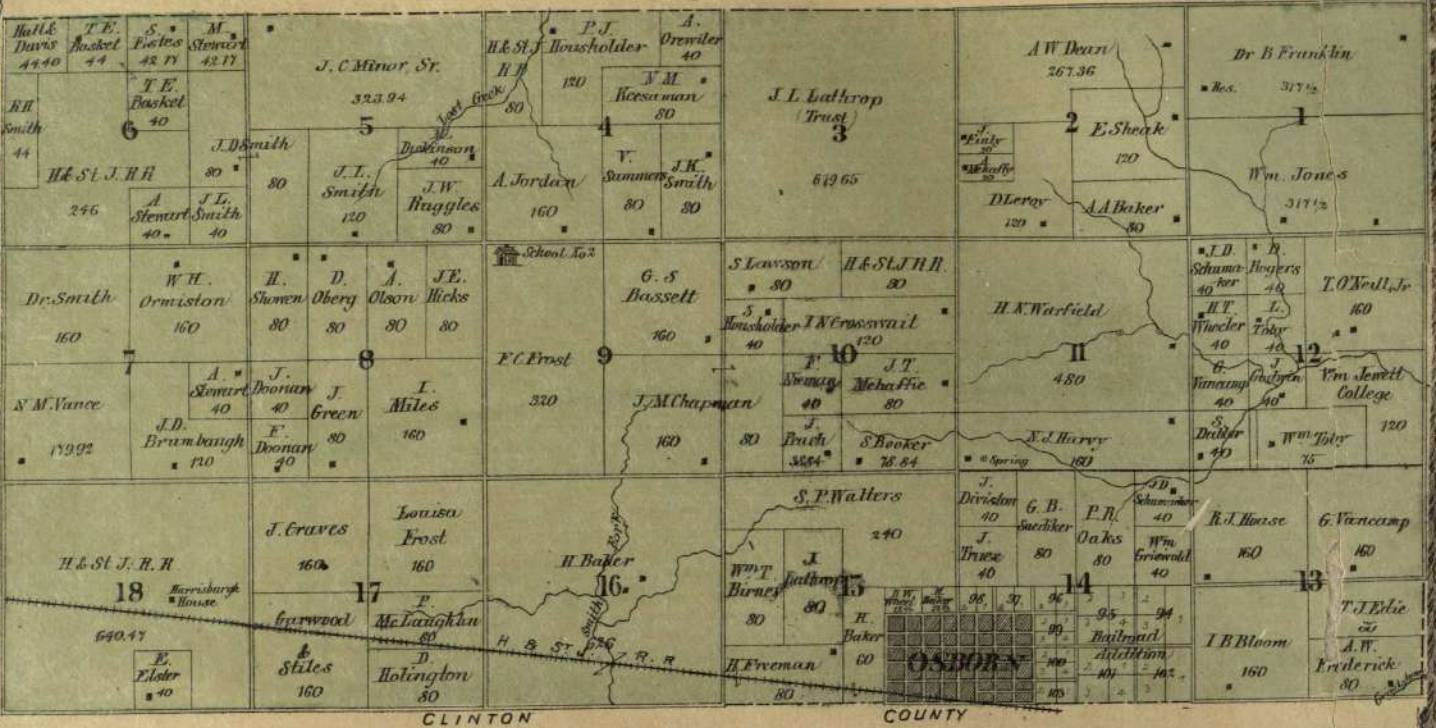 Hall &
Davis
44.40
T. E.
Basket
44
S.
Estes
42.17
M.
Stewart
42.17
R H
Smith
44
T. E.
Basket
40
6
H & St J. R R
246
J. D Smith
80
A
Stewart
40
J. L.
Smith
40
J. C Minor, Sr.
323.94
5
Lost Creek
80
J. L.
Smith
120
Dickinson
40
J. W
Ruggles
80
H & St J
R R
80
P J
Housholder
120
A.
Orewiler
40
N M
Keesaman
80
4
A. Jordan
160
V.
Summers
80
J. K.
Smith
80
J. L Lathrop
(Trust)
3
649 65
A W Dean
267.36
2
E Sheak
120
J.
Finly
20
A
Mehaffy
20
D Leroy
120
A A Baker
80
Dr B Franklin
Res.
317 1/2
1
Wm. Jones
317 1/2
Dr. Smith
160
W H.
Ormiston
160
7
N M. Vance
179.92
A.
Stewart
40
J. D.
Brumbaugh
120
H.
Showen
80
D.
Oberg
80
A.
Olson
80
J. E.
Hicks
80
8
J.
Doonan
40
F.
Doonan
40
J.
Green
80
I.
Miles
160
School No 2
G. S
Bassett
160
9
F. C. Frost
320
J. M. Chapman
160
80
S Lawson
80
H & St J H R.
80
S
Housholder
40
I N Crosswait
120
10
F
Nieman
40
J. T
Mehaffie
80
J.
Peach
38.84
S. Booker
78.84
H. K. Warfield
11
480
N. J. Harvy
Spring
160
J. D.
Schuma-
ker
40
D.
Rogers
40
T. O'Neill, Jr
160
H. T.
Wheeler
40
L.
Toby
40
12
G.
Vancamp
40
J
Goodwin
40
Wm Jewett
College
120
S
Dibler
40
Wm Toby
75
H & St J. R. R
18
Harrisburgh
House
640.47
E.
Elster
40
J. Graves
160
Louisa
Frost
160
17
Garwood
&
Stiles
160
P.
Mc Laughlin
80
D.
Holington
80
H. Baker
16
Smith Fork
576
H & ST J R. R
S. P. Walters
240
Wm T
Birney
80
J.
Lathrop
80
15
H.
Baker
60
H. Freeman
80
J.
Division
40
G. B.
Snediker
80
P. R.
Oaks
80
J. D.
Schumaker
40
J.
Truex
40
Wm
Griswold
40
14
98
97
96
95
94
99
Railroad
Addition
100
101
102
103
OSBORN
R. J. House
160
G. Vancamp
160
13
I B Bloom
160
T. J. Edie
A. W.
Frederick
80
CLINTON COUNTY